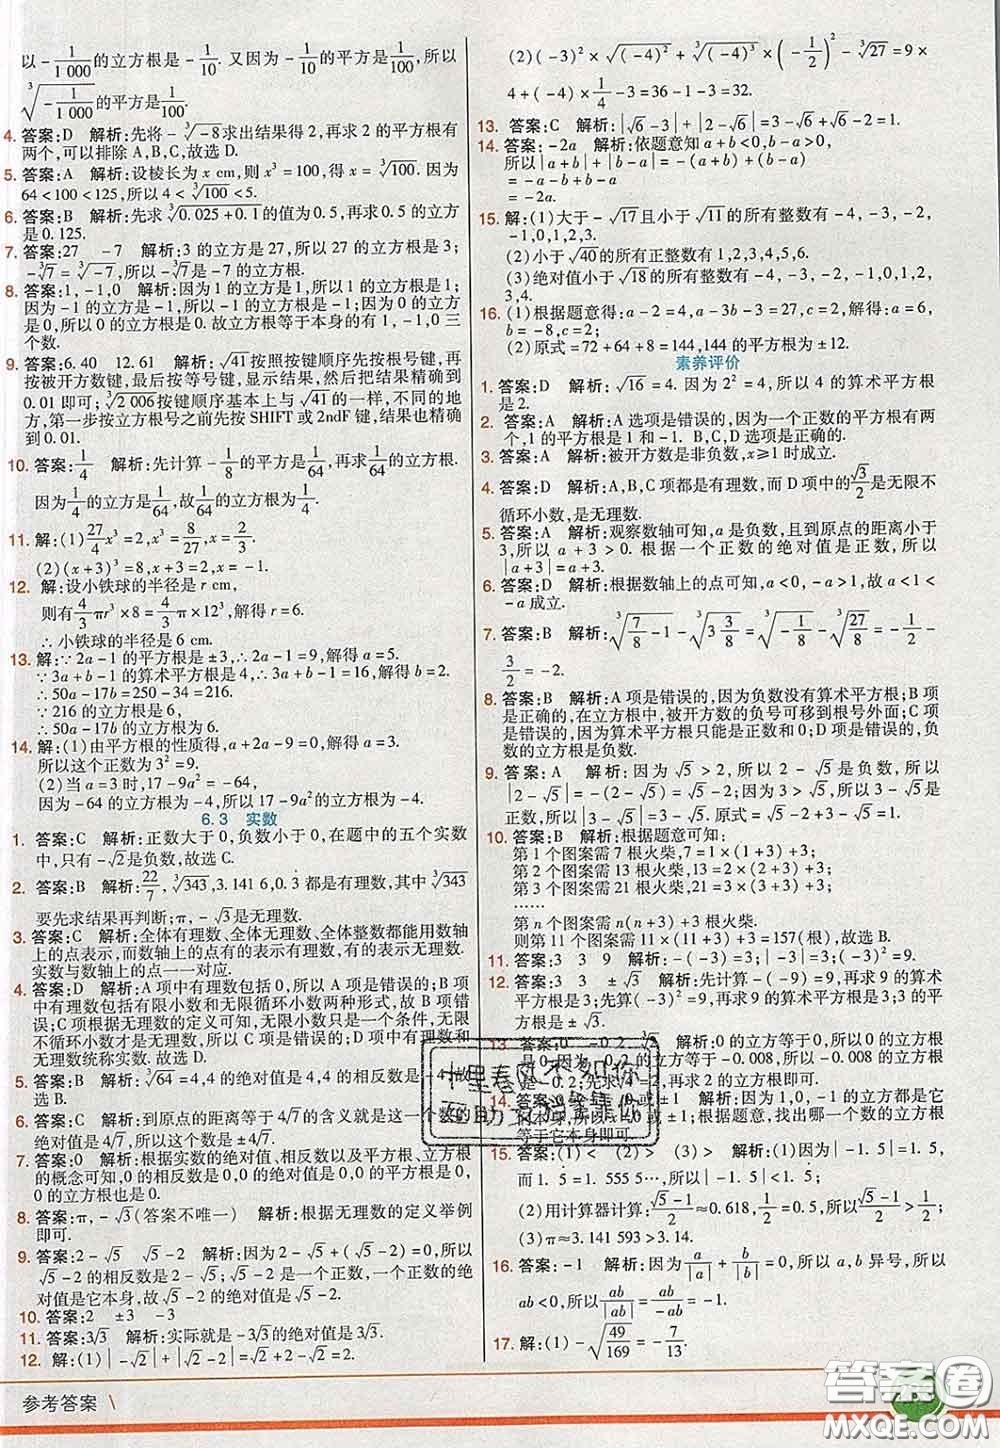 以-1/1 000的立方根是-1/10. 又因为-1/10的平方是1/100,所以
∛(-1/1 000)的平方是1/100.
4. 答案:D 解析:先将-∛-8求出结果得2,再求2的平方根有
两个,可以排除A,B,C,故选D.
5. 答案:A 解析:设棱长为x cm,则x³=100,得x=∛100. 因为
64<100<125,所以4<∛100<5.
6. 答案:B 解析:先求∛0.025+0.1的值为0.5,再求0.5的立方
是0.125.
7. 答案:27 -7 解析:3的立方是27,所以27的立方根是3;
-∛7=∛-7,所以-∛7是-7的立方根.
8. 答案:1,-1,0 解析:因为1的立方是1,所以1的立方根是1;
因为-1的立方是-1,所以-1的立方根是-1;因为0的立方
是0,所以0的立方根是0. 故立方根等于本身的有1,-1,0三
个数.
9. 答案:6.40 12.61 解析:√41按照按键顺序先按根号键,再
按被开方数键,最后按等号键,显示结果,然后将结果精确到
0.01即可;∛2 006按键顺序基本上与√41的一样,不同的地
方,第一步按立方根号之前先按SHIFT或2ndF键,结果也精确
到0.01.
10. 答案:1/4 解析:先计算-1/8的平方是1/64,再求1/64的立方根.
因为1/4的立方是1/64,故1/64的立方根是1/4.
11. 解:(1)27/4x³=2,x³=8/27,x=2/3.
(2)(x+3)³=8,x+3=2,x=-1.
12. 解:设小铁球的半径是r cm,
则有4/3πr³×8=4/3π×12³,解得r=6.
∴小铁球的半径是6 cm.
13. 解:∵2a-1的平方根是±3,∴2a-1=9,解得a=5.
∵3a+b-1的算术平方根是4,∴3a+b-1=16,解得b=2.
∴50a-17b=250-34=216.
∵216的立方根是6,
∴50a-17b的立方根为6.
14. 解:(1)由平方根的性质得,a+2a-9=0,解得a=3.
所以这个正数为3²=9.
(2)当a=3时,17-9a²=-64,
因为-64的立方根为-4,所以17-9a²的立方根为-4.
6.3 实数
1. 答案:C 解析:正数大于0,负数小于0,在题中的五个实数
中,只有-√2是负数,故选C.
2. 答案:B 解析:22/7,∛343,3.141 6,0.3都是有理数,其中∛343
要先求结果再判断;π,-√3是无理数.
3. 答案:C 解析:全体有理数、全体无理数、全体整数都能用数轴
上的点表示,而数轴上的点有的表示有理数,有的表示无理数.
实数与数轴上的点一一对应.
4. 答案:D 解析:A项中有理数包括0,所以A项是错误的;B项
中有理数包括有限小数和无限循环小数两种形式,故B项错
误;C项根据无理数的定义可知,无限小数只是一个条件,无限
不循环小数才是无理数,所以C项是错误的;D项中有理数和
无理数统称实数. 故选D.
5. 答案:B 解析:∛64=4,4的绝对值是4,4的相反数是-4,故
选B.
6. 答案:C 解析:到原点的距离等于4√7的含义就是这一个数的
绝对值是4√7,所以这个数是±4√7.
7. 答案:0 解析:根据实数的绝对值、相反数以及平方根、立方根
的概念可知,0的绝对值是0,0的相反数是0,0的平方根是0,
0的立方根也是0.
8. 答案:π,-√3(答案不唯一) 解析:根据无理数的定义举例
即可.
9. 答案:2-√5 √5-2 解析:因为2-√5+(√5-2)=0,所以
√5-2的相反数是2-√5;√5-2是一个正数,一个正数的绝
对值是它本身,故√5-2的绝对值是√5-2.
10. 答案:2 ±3 -3
11. 答案:3√3 解析:实际就是-3√3的绝对值是3√3.
12. 解:(1)|-√2|+|√2-2|=√2-√2+2=2.
(2)(-3)²×√(-4)²+∛(-4)³×(-1/2)²-∛27=9×
4+(-4)×1/4-3=36-1-3=32.
13. 答案:C 解析:|√6-3|+|2-√6|=3-√6+√6-2=1.
14. 答案:-2a 解析:依题意知a+b<0,b-a>0,
所以|a+b|+|b-a|=-(a+b)+(b-a)
=-a-b+b-a
=-2a.
15. 解:(1)大于-√17且小于√11的所有整数有-4,-3,-2,
-1,0,1,2,3.
(2)小于√40的所有正整数有1,2,3,4,5,6.
(3)绝对值小于√18的所有整数有-4,-3,-2,-1,0,1,2,
3,4.
16. 解:(1)根据题意得:a-2=4,a-3b-3=27,c=2,解得:a=6,
b=-8,c=2;
(2)原式=72+64+8=144,144的平方根为±12.
素养评价
1. 答案:D 解析:√16=4. 因为2²=4,所以4的算术平方根
是2.
2. 答案:A 解析:A选项是错误的,因为一个正数的平方根有两
个,1的平方根是1和-1. B,C,D选项是正确的.
3. 答案:A 解析:被开方数是非负数,x≥1时成立.
4. 答案:D 解析:A,B,C项都是有理数,而D项中的√3/2是无限不
循环小数,是无理数.
5. 答案:A 解析:观察数轴可知,a是负数,且到原点的距离小于
3,所以a+3>0. 根据一个正数的绝对值是正数,所以
|a+3|=a+3.
6. 答案:D 解析:根据数轴上的点可知,a<0,-a>1,故a<1<
-a成立.
7. 答案:B 解析:∛(7/8-1)-∛(3 3/8)=∛(-1/8)-∛(27/8)=-1/2-
3/2=-2.
8. 答案:B 解析:A项是错误的,因为负数没有算术平方根;B项
是正确的,在立方根中,被开方数的负号可移到根号外面;C项
是错误的,因为算术平方根只能是正数和0;D项是错误的,负
数的立方根是负数.
9. 答案:A 解析:因为√5>2,所以2-√5是负数,所以
|2-√5|=-(2-√5)=√5-2. 因为3>√5,所以3-√5是
正数,所以|3-√5|=3-√5. 原式=√5-2+3-√5=1.
10. 答案:B 解析:根据题意可知:
第1个图案需7根火柴,7=1×(1+3)+3;
第2个图案需13根火柴,13=2×(2+3)+3;
第3个图案需21根火柴,21=3×(3+3)+3;
……
第n个图案需n(n+3)+3根火柴.
则第11个图案需11×(11+3)+3=157(根),故选B.
11. 答案:3 3 9 解析:-(-3)=3,√9=3,(-3)²=9.
12. 答案:3 3 ±√3 解析:先计算-(-9)=9,再求9的算术
平方根是3;先算(-3)²=9,再求9的算术平方根是3;3的
平方根是±√3.
13. 答案:0 -0.2 ∛2 解析:0的立方等于0,所以0的立方根
是0,因为-0.2的立方等于-0.008,所以-0.008的立方根
是-0.2;先求√4=2,再求2的立方根即可.
14. 根据题意,找出哪一个数的立方根
等于它本身即可.
15. 答案:(1)< (2)> (3)> 解析:(1)因为|-1.5|=1.5,
而1.5̇=1.555 5…,所以|-1.5|<1.5̇;
(2)用计算器计算:(√5-1)/2≈0.618,1/2=0.5,所以(√5-1)/2>1/2;
(3)π≈3.141 593>3.14.
16. 答案:-1 解析:因为a/|a|+b/|b|=0,所以a,b异号,所以
ab<0,所以ab/|ab|=ab/-ab=-1.
17. 解:(1)-√(49/169)=-7/13.
参考答案
十里春风不如你
答案圈
MXQE.COM